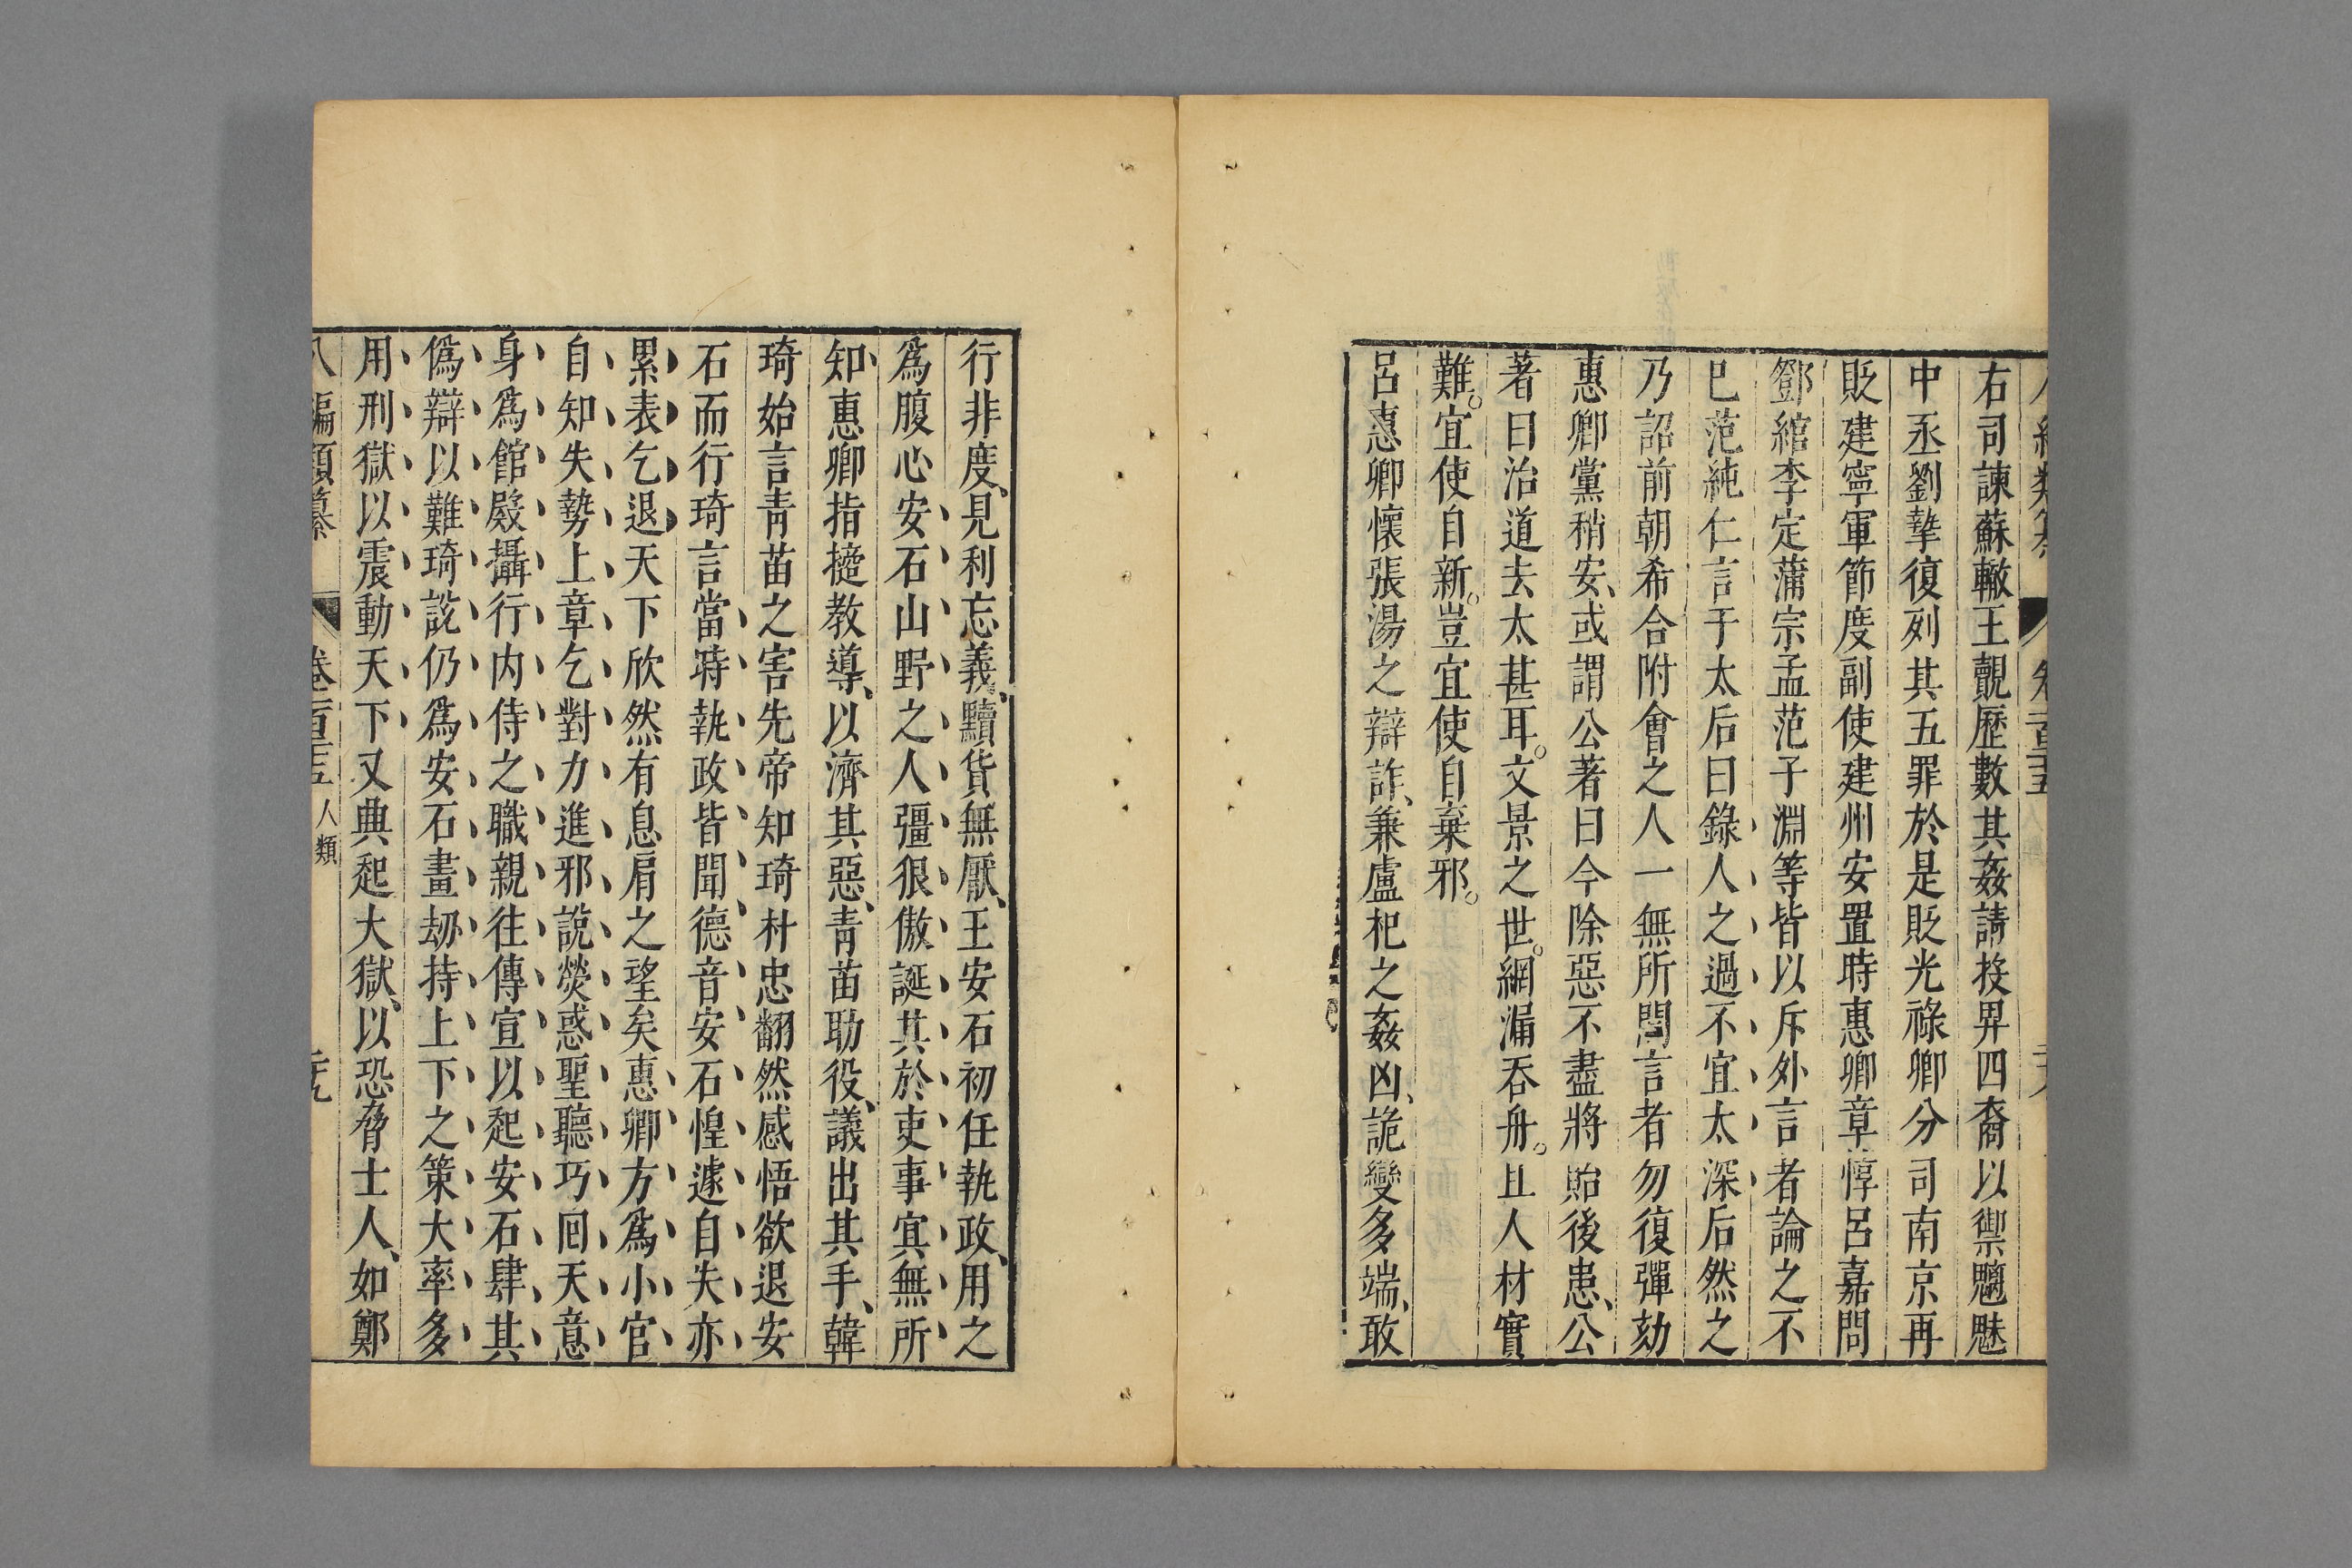 右司諫蘇轍王覿歷數其姦請投畀四裔以禦魑魅
中丞劉摯復列其五罪於是貶光祿卿分司南京再
貶建寧軍節度副使建州安置時惠卿章惇呂嘉問
鄧綰李定蒲宗孟范子淵等皆以斥外言者論之不
已范純仁言于太后曰錄人之過不宜太深后然之
乃詔前朝希合附會之人一無所問言者勿復彈劾
惠卿黨稍安、或謂公著曰今除惡不盡將貽後患、公
著曰治道去太甚耳。文景之世。網漏吞舟。且人材實
難。宜使自新。豈宜使自棄邪。
呂惠卿懷張湯之辯詐、兼盧杞之姦凶、詭變多端、敢
行非度、見利忘義、黷貨無厭、王安石初任執政、用之
爲腹心安石山野之人彊狠傲誕其於吏事冥無所
知惠卿指擿教導、以濟其惡、青苗助役、議出其手、韓
琦始言青苗之害先帝知琦朴忠翻然感悟欲退安
石而行琦言當時執政皆聞德音安石惶遽自失亦
累表乞退天下欣然有息肩之望矣惠卿方爲小官
自知失勢上章乞對力進邪說熒惑聖聽巧囘天意
身爲館殿攝行内侍之職親往傳宣以起安石肆其
僞辯以難琦說仍爲安石畫劫持上下之策大率多
用刑獄以震動天下又典起大獄、以恐脅士人、如鄭
八編類纂 卷二百三五 人類 二十九